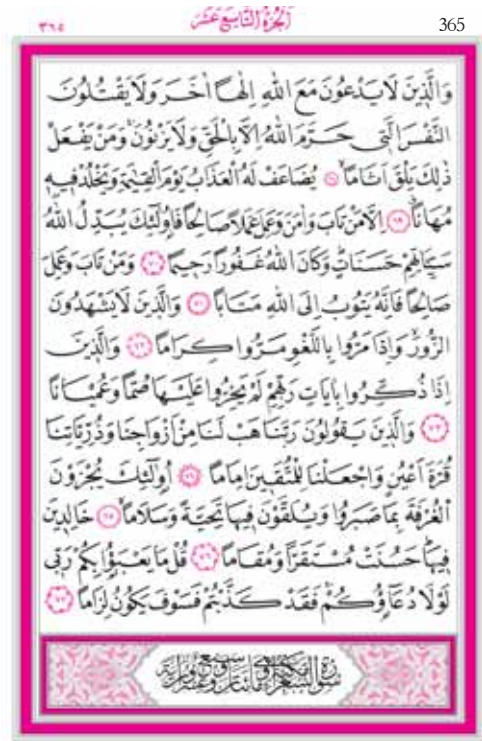 ٣٦٥ اَلْجُزْءُ التَّاسِعَ عَشَرَ 365
وَالَّذٖينَ لَا يَدْعُونَ مَعَ اللّٰهِ اِلٰهًا اٰخَرَ وَلَا يَقْتُلُونَ
النَّفْسَ الَّتٖى حَرَّمَ اللّٰهُ اِلَّا بِالْحَقِّ وَلَا يَزْنُونَۚ وَمَنْ يَفْعَلْ
ذٰلِكَ يَلْقَ اَثَامًاۙ ﴿٦٨﴾ يُضَاعَفْ لَهُ الْعَذَابُ يَوْمَ الْقِيٰمَةِ وَيَخْلُدْ فٖيهٖ
مُهَانًاۗ ﴿٦٩﴾ اِلَّا مَنْ تَابَ وَاٰمَنَ وَعَمِلَ عَمَلًا صَالِحًا فَاُولٰٓئِكَ يُبَدِّلُ اللّٰهُ
سَيِّـَٔاتِهِمْ حَسَنَاتٍۜ وَكَانَ اللّٰهُ غَفُورًا رَحٖيمًا ﴿٧٠﴾ وَمَنْ تَابَ وَعَمِلَ
صَالِحًا فَاِنَّهُ يَتُوبُ اِلَى اللّٰهِ مَتَابًا ﴿٧١﴾ وَالَّذٖينَ لَا يَشْهَدُونَ
الزُّورَۙ وَاِذَا مَرُّوا بِاللَّغْوِ مَرُّوا كِرَامًا ﴿٧٢﴾ وَالَّذٖينَ
اِذَا ذُكِّرُوا بِاٰيَاتِ رَبِّهِمْ لَمْ يَخِرُّوا عَلَيْهَا صُمًّا وَعُمْيَانًا
﴿٧٣﴾ وَالَّذٖينَ يَقُولُونَ رَبَّنَا هَبْ لَنَا مِنْ اَزْوَاجِنَا وَذُرِّيَّاتِنَا
قُرَّةَ اَعْيُنٍ وَاجْعَلْنَا لِلْمُتَّقٖينَ اِمَامًا ﴿٧٤﴾ اُولٰٓئِكَ يُجْزَوْنَ
الْغُرْفَةَ بِمَا صَبَرُوا وَيُلَقَّوْنَ فٖيهَا تَحِيَّةً وَسَلَامًاۙ ﴿٧٥﴾ خَالِدٖينَ
فٖيهَاۜ حَسُنَتْ مُسْتَقَرًّا وَمُقَامًا ﴿٧٦﴾ قُلْ مَا يَعْبَؤُا بِكُمْ رَبّٖى
لَوْلَا دُعَٓاؤُ۬كُمْۚ فَقَدْ كَذَّبْتُمْ فَسَوْفَ يَكُونُ لِزَامًا ﴿٧٧﴾
سُورَةُ الشُّعَرَاءِ مَكِّيَّةٌ وَهِيَ مِائَتَانِ وَسَبْعٌ وَعِشْرُونَ اٰيَةً